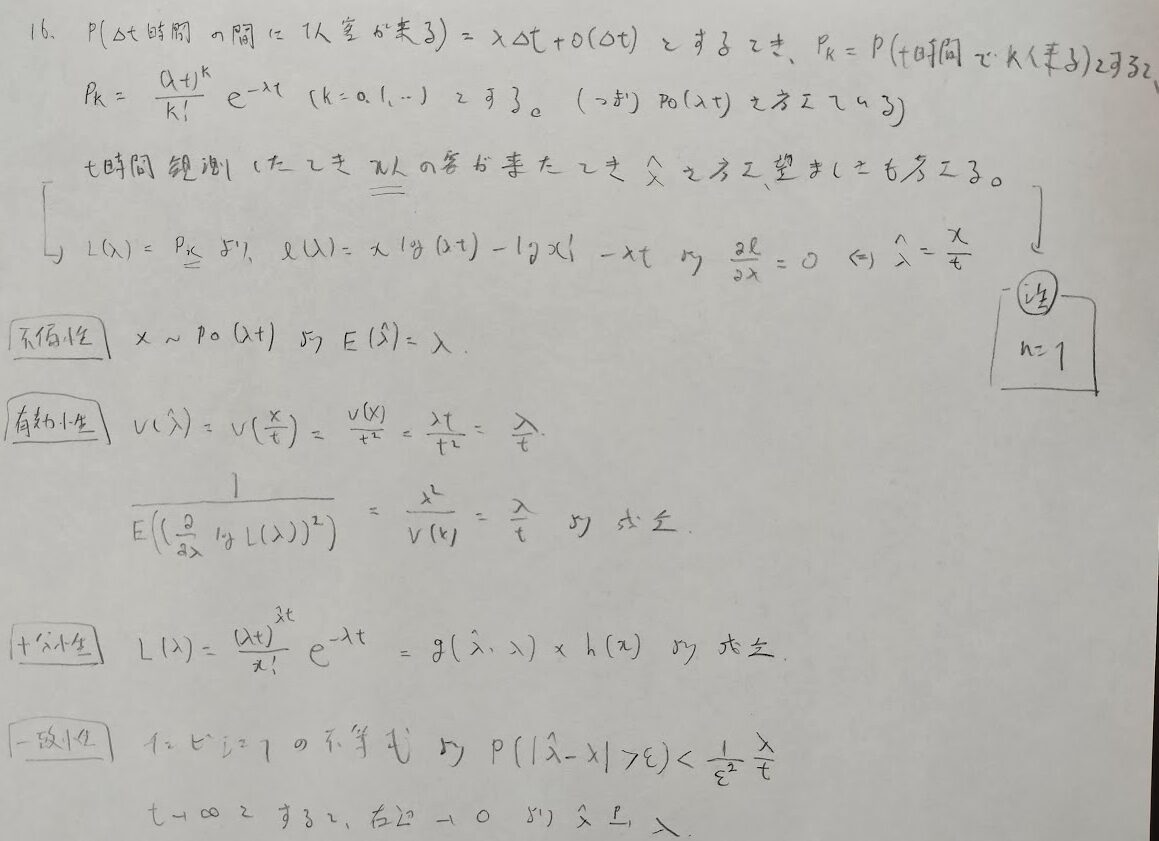 16. P(Δt時間の間に1人客が来る) = λΔt + o(Δt) とするとき、Pk = P(t時間でk人来る)とすると、
Pk = (λt)^k / k! e^{-λt} (k=0,1,…) とする。(つまり Po(λt) を考えている)
t時間観測したとき x人の客が来たとき λ̂ を考え、望ましさも考える。
L(λ) = Px より、l(λ) = x log(λt) - log x! - λt より ∂l/∂λ = 0 ⇔ λ̂ = x/t
注
n=1
不偏性 x ~ Po(λt) より E(λ̂) = λ.
有効性 V(λ̂) = V(x/t) = V(x)/t² = λt/t² = λ/t.
1 / E((∂/∂λ log L(λ))²) = λ²/V(x) = λ/t より 成立.
十分性 L(λ) = (λt)^{λ̂t} / x! e^{-λt} = g(λ̂, λ) × h(x) より 成立.
一致性 チェビシェフの不等式 より P(|λ̂-λ|>ε) < 1/ε² λ/t
t→∞ とすると、右辺→0 より λ̂ →^P λ.